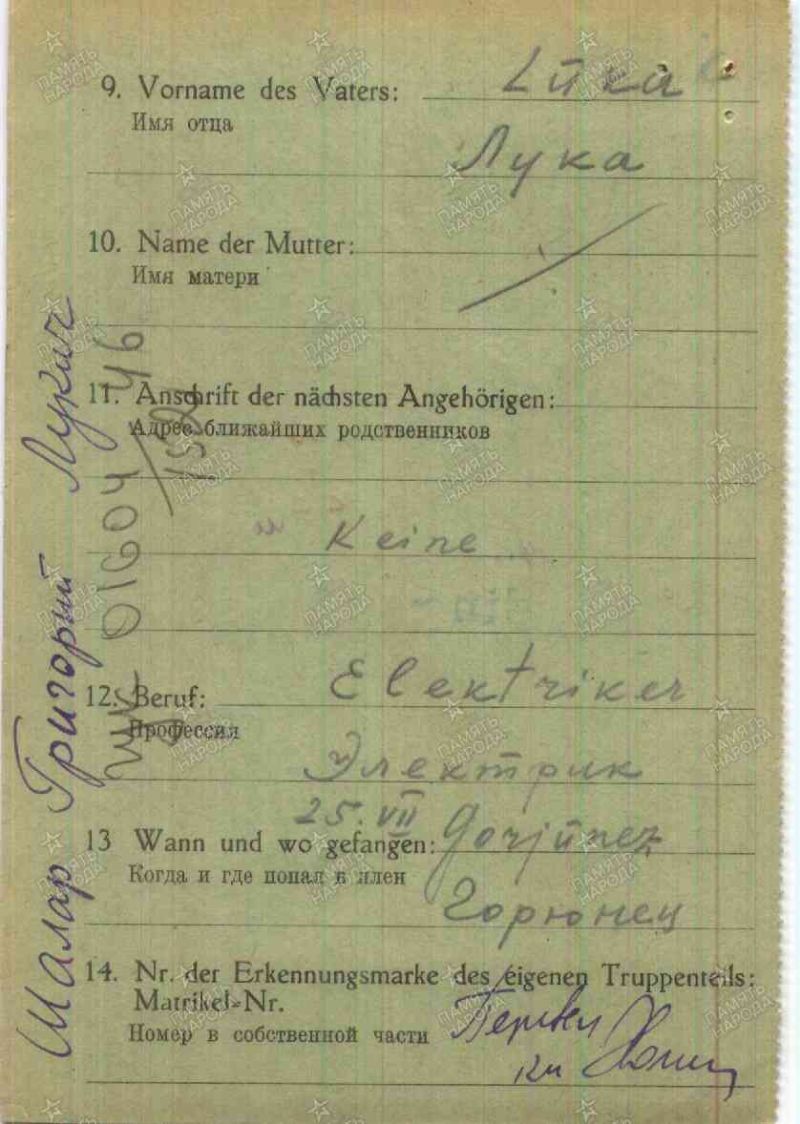 9. Vorname des Vaters: Lūka
Имя отца
Лука
10. Name der Mutter:
Имя матери
11. Anschrift der nächsten Angehörigen:
Адрес ближайших родственников
Keine
12. Beruf: Elektriker
Профессия
Электрик
25.VII
13 Wann und wo gefangen: Gorjūnez
Когда и где попал в плен
Горюнец
14. Nr. der Erkennungsmarke des eigenen Truppenteils:
Matrikel-Nr.
Номер в собственной части
Шалар Григорий Лукич
01604 46
ПАМЯТЬ НАРОДА